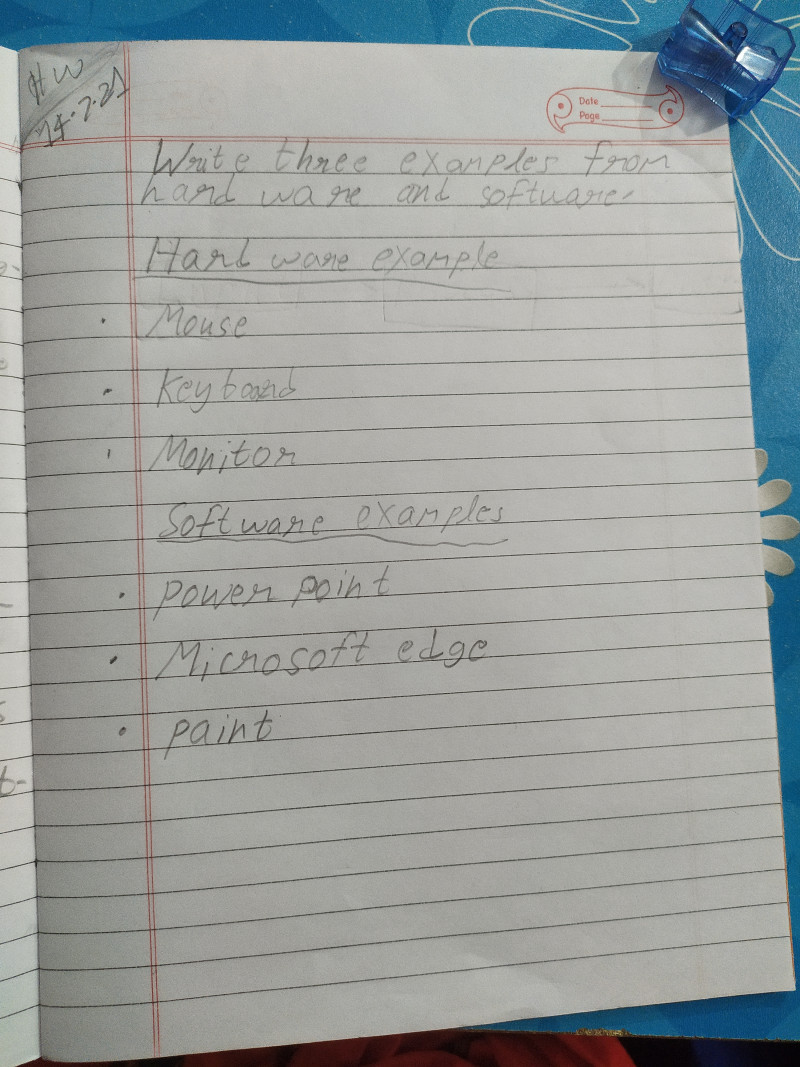 HW
14.7.21
Date
Page
Write three examples from
hard ware and software.
Hard ware example
• Mouse
• Keyboard
• Monitor
Software examples
• power point
• Microsoft edge
• paint